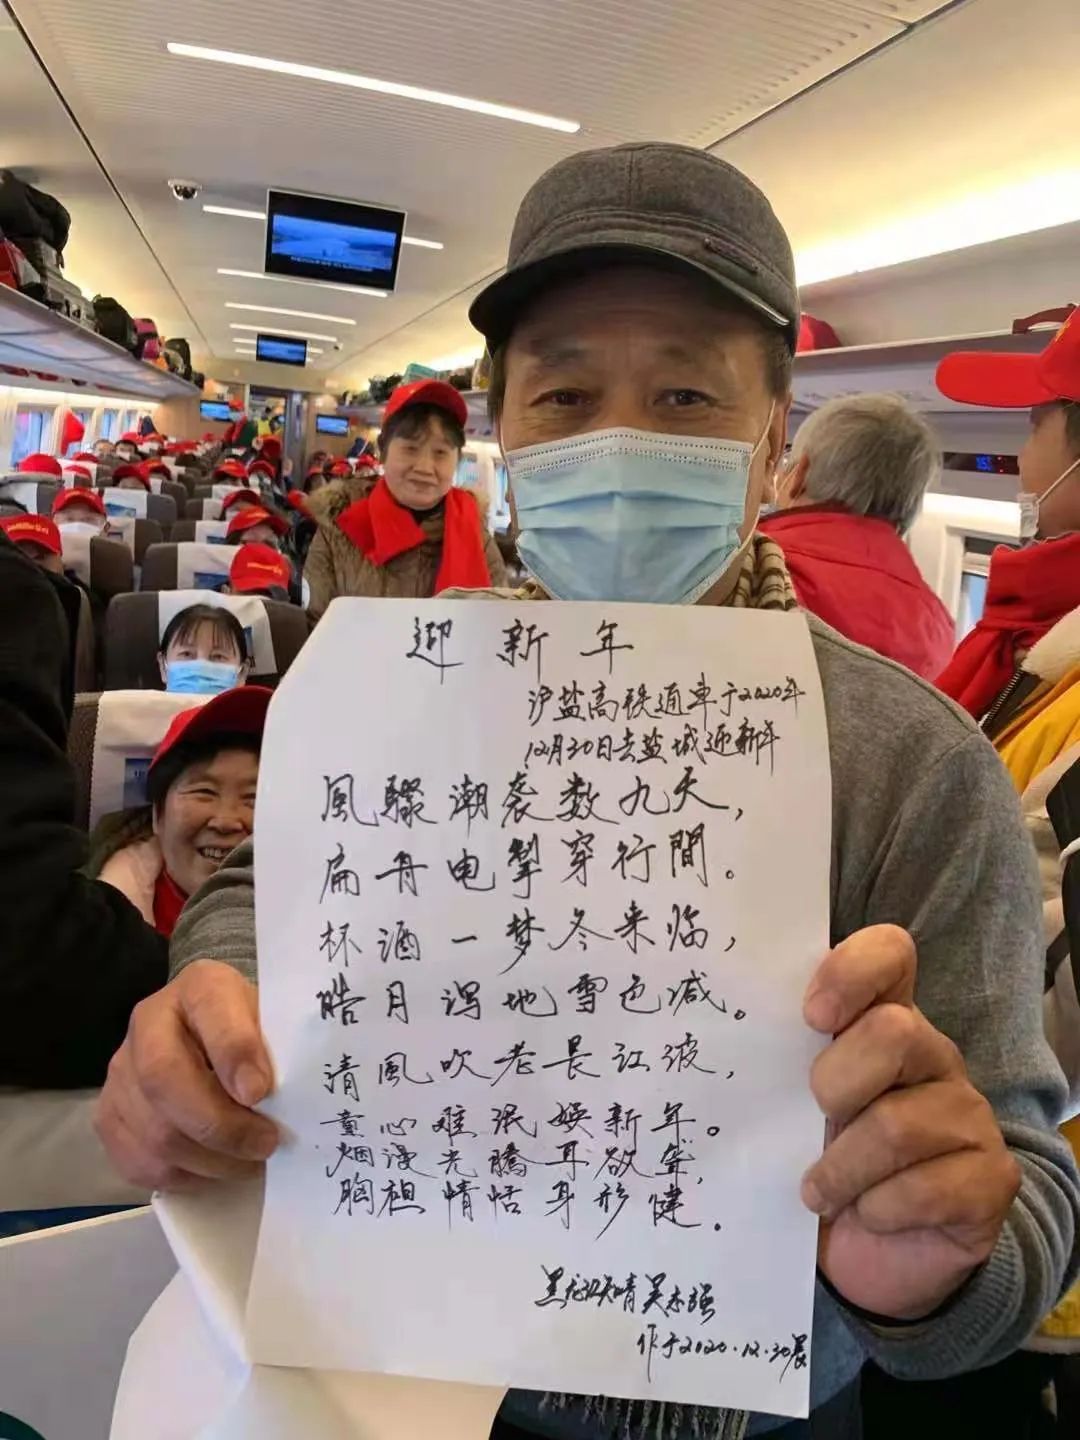 迎新年
沪盐高铁通车于2020年
12月30日去盐城迎新年
風驟潮袭数九天，
扁舟电掣穿行間。
杯酒一梦冬来临，
皓月泻地雪色减。
清風吹老長江波，
童心难泯娱新年。
烟漫光腾耳欲聋，
胸袒情恬身形健。
黑龙江知青吴杰强
作于2020.12.30晨